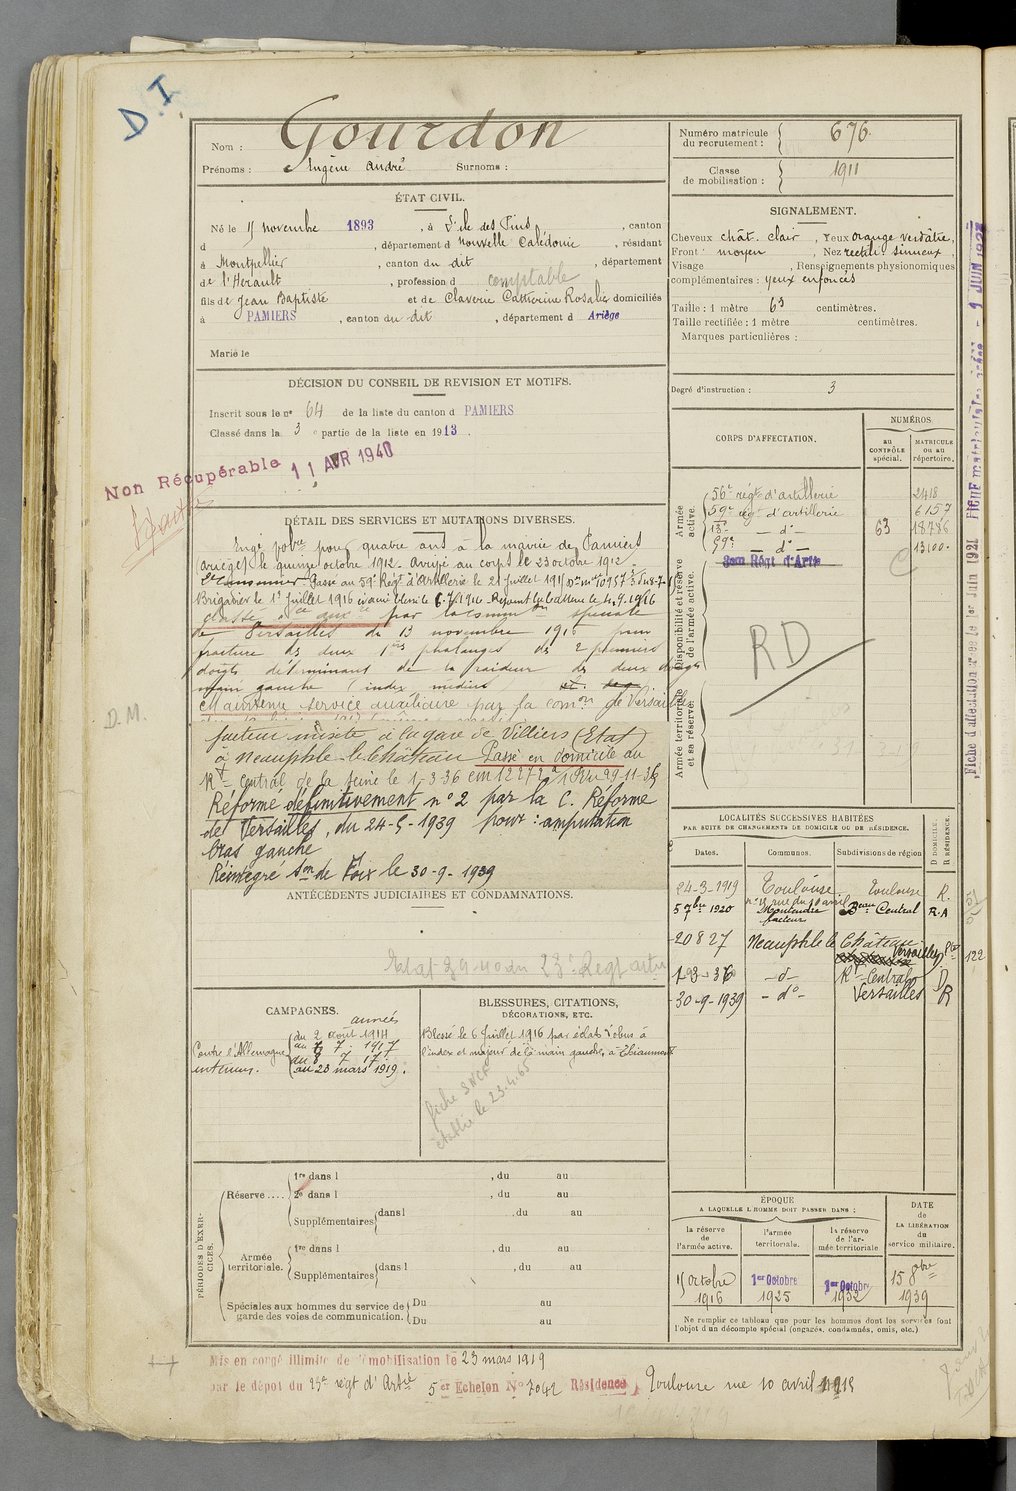 D.I
Nom : Gourdon
Prénoms : Eugène André Surnoms :
Numéro matricule du recrutement : 676
Classe de mobilisation : 1911
ÉTAT CIVIL.
Né le 15 novembre 1893, à l'île des Pins, canton
d , département d Nouvelle Calédonie, résidant
à Montpellier, canton du dit, département
de l'Hérault, profession d comptable
fils de Jean Baptiste et de Claverie Catherine Rosalie domiciliés
à PAMIERS, canton du dit, département d Ariège
Marié le
SIGNALEMENT.
Cheveux chât. clair, Yeux orange verdâtre,
Front moyen, Nez rectil. sinueux,
Visage , Renseignements physionomiques
complémentaires : yeux enfoncés
Taille : 1 mètre 63 centimètres.
Taille rectifiée : 1 mètre centimètres.
Marques particulières :
Degré d'instruction : 3
DÉCISION DU CONSEIL DE REVISION ET MOTIFS.
Inscrit sous le n° 64 de la liste du canton d PAMIERS
Classé dans la 3e partie de la liste en 1913.
Non Récupérable 11 AVR 1940
DÉTAIL DES SERVICES ET MUTATIONS DIVERSES.
Engé volre pour quatre ans à la mairie de Pamiers
(Ariège) le quinze octobre 1912. Arrivé au corps le 23 octobre 1912.
Passé au 59e Régt d'Artillerie le 21 Juillet 1915
Brigadier le 1er Juillet 1916 Evacué blessé le 6/7/1916. Rejoint la batterie le 4.9.1916
classé par la comm on spéciale
de Versailles du 13 novembre 1916 pour
fracture des deux 1res phalanges des 2 premiers
doigts déterminant de la raideur des deux doigts
main gauche (index médius
Maintenu service auxiliaire par la comon de Versailles
facteur mixte à la gare de Villiers (Etat)
à Neauphle-le-Château Passé en domicile au
Rt Central de la Seine le 1-3-36
Réformé définitivement n° 2 par la C. Réforme
de Versailles, du 24-5-1939 pour : amputation
bras gauche
Réintégré Son de Foix le 30-9-1939
CORPS D'AFFECTATION.
NUMÉROS
au CONTRÔLE spécial.
MATRICULE ou au répertoire.
Armée active.
56e régt d'artillerie 2418
59e régt d'artillerie 6157
13e — do — 63 18786
59e — do — 13100.
Disponibilité et réserve de l'armée active.
Régt d'Artie
C
RD
Armée territoriale et sa réserve.
D.M.
Fiche d'affectation créée le 1er Juin 1921
1 JUIN 1928
ANTÉCÉDENTS JUDICIAIRES ET CONDAMNATIONS.
LOCALITÉS SUCCESSIVES HABITÉES
PAR SUITE DE CHANGEMENTS DE DOMICILE OU DE RÉSIDENCE.
Dates. Communes. Subdivisions de région D. DOMICILE. R. RÉSIDENCE.
24-3-1919 Toulouse Toulouse R.
rue du 10 avril
5 7bre 1920 Montendre Beau Central R.A
facteur
20 8 27 Neauphle le Château Versailles
1-3-36 — do — Rt Central D
30-9-1939 — do — Versailles R
122
CAMPAGNES.
années
Contre l'Allemagne
du 2 août 1914
au 7 7 1917
intérieur.
du 8 7 17
au 23 mars 1919.
BLESSURES, CITATIONS,
DÉCORATIONS, ETC.
Blessé le 6 Juillet 1916 par éclats d'obus à
l'index et majeur de la main gauche, à Thiaumont
fiche SNCF
établie le 23.4.65
PÉRIODES D'EXERCICES.
Réserve.... 1re dans l , du au
2e dans l , du au
Supplémentaires dans l , du au
Armée territoriale. 1re dans l , du au
Supplémentaires dans l , du au
Spéciales aux hommes du service de garde des voies de communication. Du au
Du au
ÉPOQUE
A LAQUELLE L'HOMME DOIT PASSER DANS :
la réserve de l'armée active.
l'armée territoriale.
la réserve de l'armée territoriale
DATE de LA LIBÉRATION du service militaire.
15 Octobre 1916
1er Octobre 1925
1er Octobre 1932
15 8bre 1939
Ne remplir ce tableau que pour les hommes dont les services font
l'objet d'un décompte spécial (engagés, condamnés, omis, etc.)
Mis en congé illimité de démobilisation le 23 mars 1919
par le dépôt du 23e régt d'Artie 5er Echelon N° 7042 Résidence Toulouse rue 10 avril